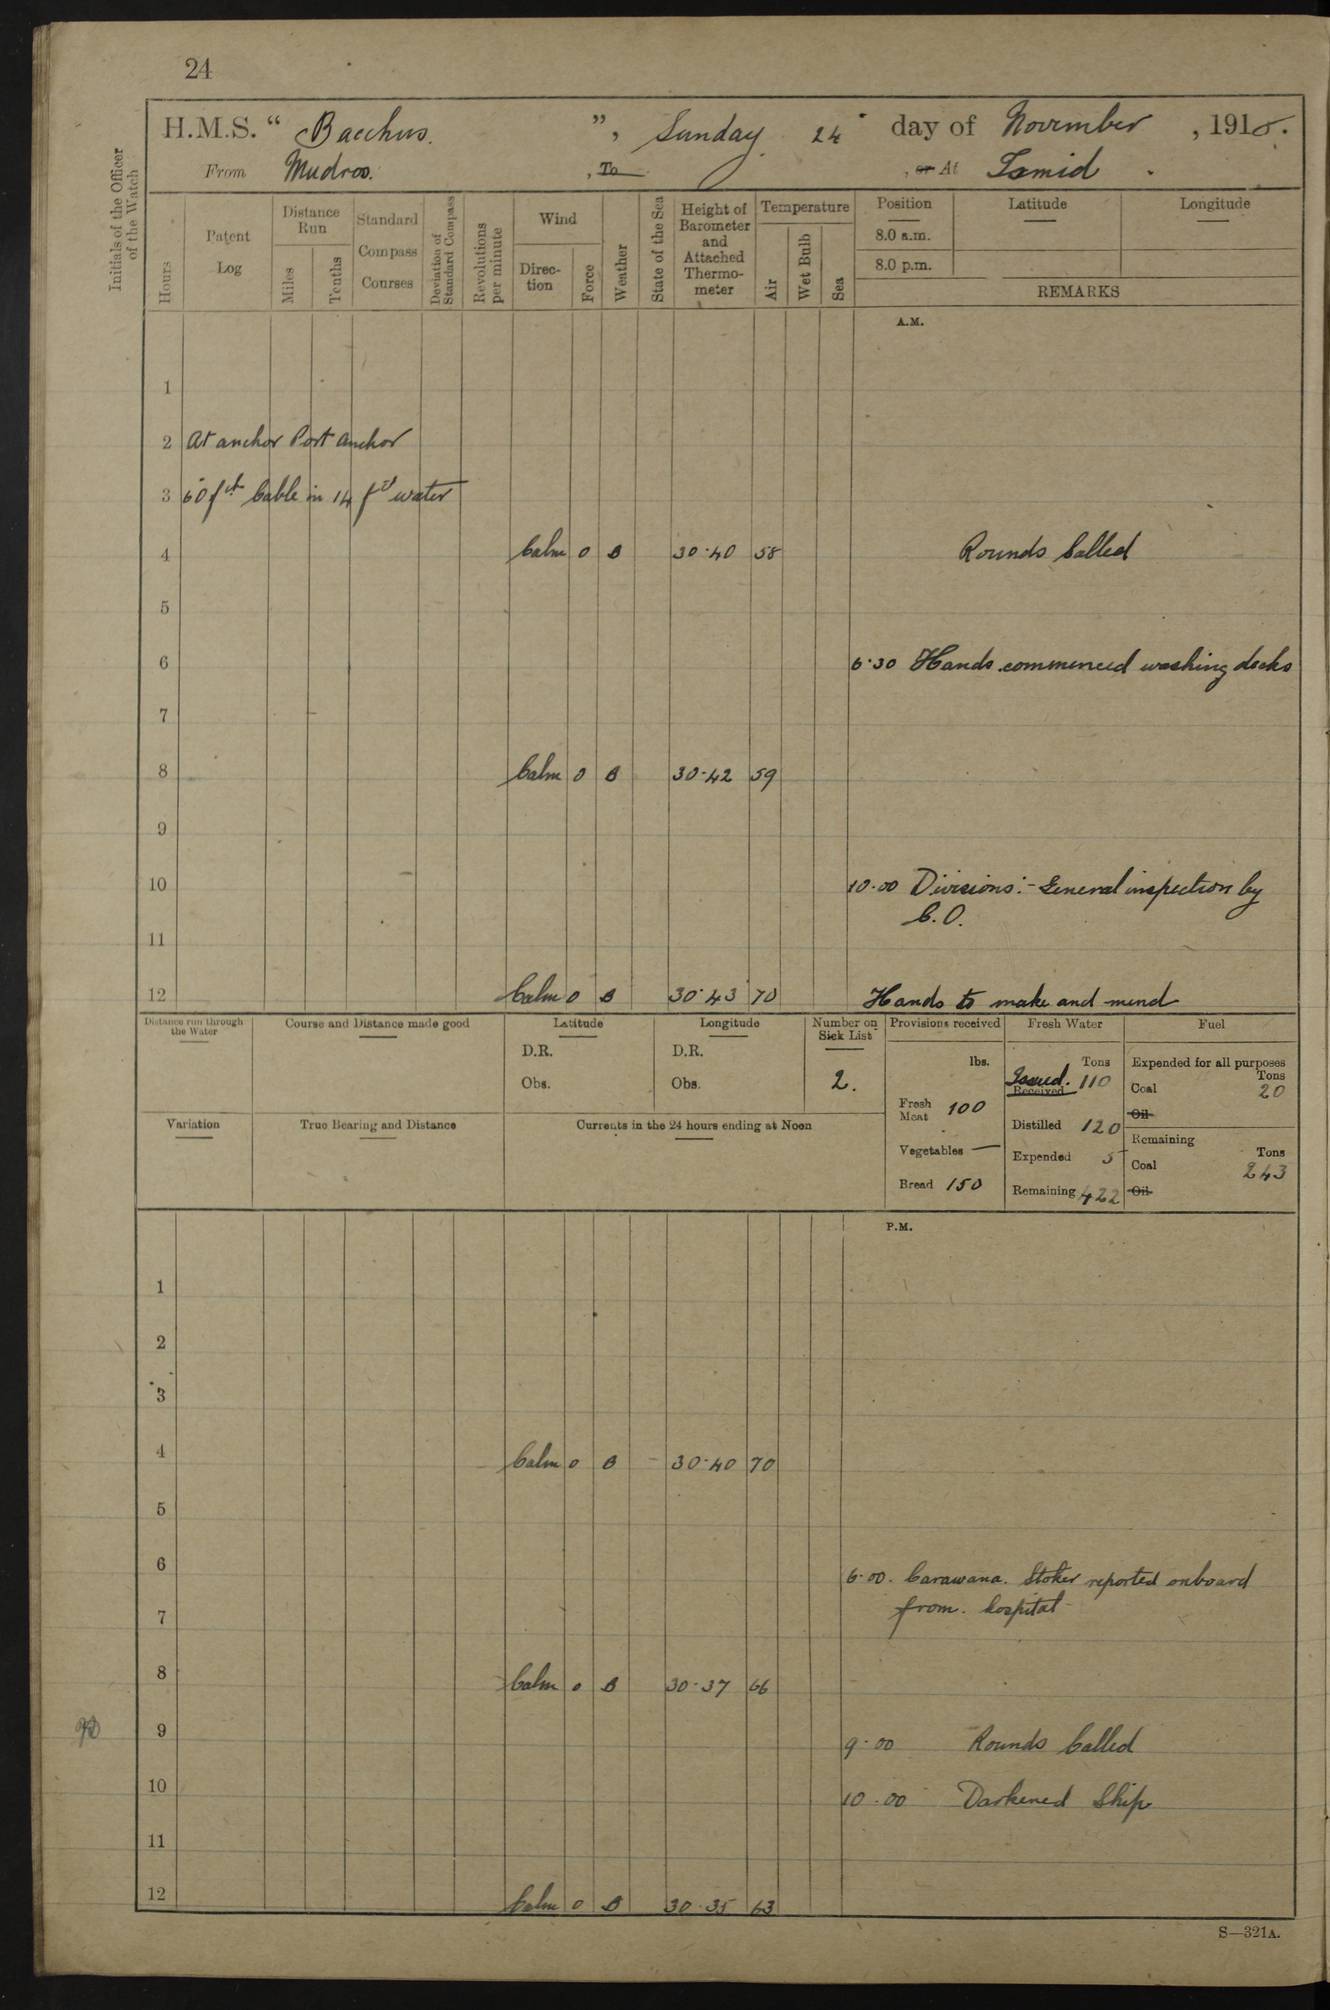 24
H.M.S. “ Bacchus. ”, Sunday 24 day of November , 1918.
From Mudros. , To , or At Ismid .
Initials of the Officer of the Watch
Hours
Patent Log
Distance Run
Miles
Tenths
Standard Compass Courses
Deviation of Standard Compass
Revolutions per minute
Wind
Direc-tion
Force
Weather
State of the Sea
Height of Barometer and Attached Thermo-meter
Temperature
Air
Wet Bulb
Sea
Position
8.0 a.m.
8.0 p.m.
Latitude
Longitude
REMARKS
A.M.
1
2 At anchor Port anchor
3 60 fth Cable in 14 fth water
4 Calm 0 B 30·40 58 Rounds Called
5
6 6·30 Hands commenced washing decks
7
8 Calm 0 B 30·42 59
9
10 10·00 Divisions:- General inspection by
C.O.
11
12 Calm 0 B 30·43 70 Hands to make and mend
Distance run through the Water
Course and Distance made good
Latitude
D.R.
Obs.
Longitude
D.R.
Obs.
Number on Sick List
2.
Provisions received
lbs.
Fresh Meat 100
Vegetables —
Bread 150
Fresh Water
Tons
Issued. Received 110
Distilled 120
Expended 5
Remaining 422
Fuel
Expended for all purposes
Tons
Coal 20
Oil
Remaining
Tons
Coal 243
Oil
Variation
True Bearing and Distance
Currents in the 24 hours ending at Noon
P.M.
1
2
3
4 Calm 0 B 30·40 70
5
6 6·00. Carawana. Stoker reported onboard
from. hospital
7
8 Calm 0 B 30·37 66
9 9·00 Rounds Called
10 10·00 Darkened Ship
11
12 Calm 0 B 30·35 63
S—321A.